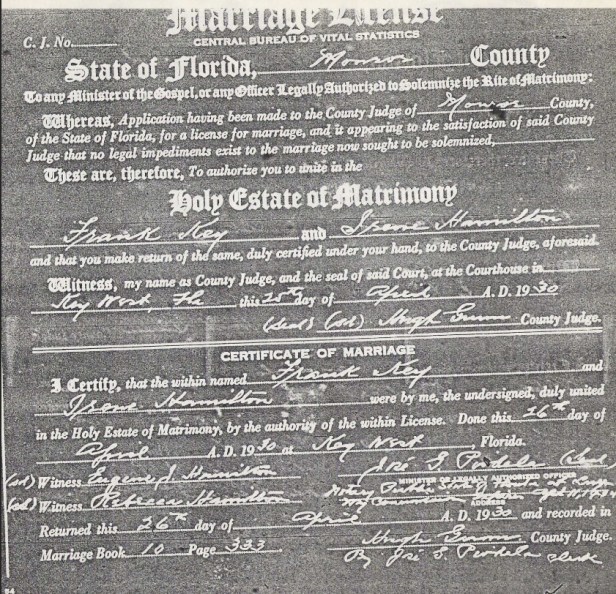 Marriage License
C. J. No.
CENTRAL BUREAU OF VITAL STATISTICS
State of Florida, Monroe County
To any Minister of the Gospel, or any Officer Legally Authorized to Solemnize the Rite of Matrimony:
Whereas, Application having been made to the County Judge of Monroe County,
of the State of Florida, for a license for marriage, and it appearing to the satisfaction of said County
Judge that no legal impediments exist to the marriage now sought to be solemnized,
These are, therefore, To authorize you to unite in the
Holy Estate of Matrimony
Frank Key and Irene Hamilton
and that you make return of the same, duly certified under your hand, to the County Judge, aforesaid.
Witness, my name as County Judge, and the seal of said Court, at the Courthouse in
Key West, Fla this 25th day of April A. D. 1930
(seal) (sd) Hugh Gunn County Judge.
CERTIFICATE OF MARRIAGE
I Certify, that the within named Frank Key and
Irene Hamilton were by me, the undersigned, duly united
in the Holy Estate of Matrimony, by the authority of the within License. Done this 26th day of
April A. D. 1930 at Key West, Florida.
(sd) Witness Eugene J. Hamilton
(sd) Witness Rebecca Hamilton
MINISTER OR LEGALLY AUTHORIZED OFFICER
Notary Public State of Florida at Large
My Commission Expires
ADDRESS
Returned this 26th day of April A. D. 1930 and recorded in
Marriage Book 10 Page 333 Hugh Gunn County Judge.
By
54